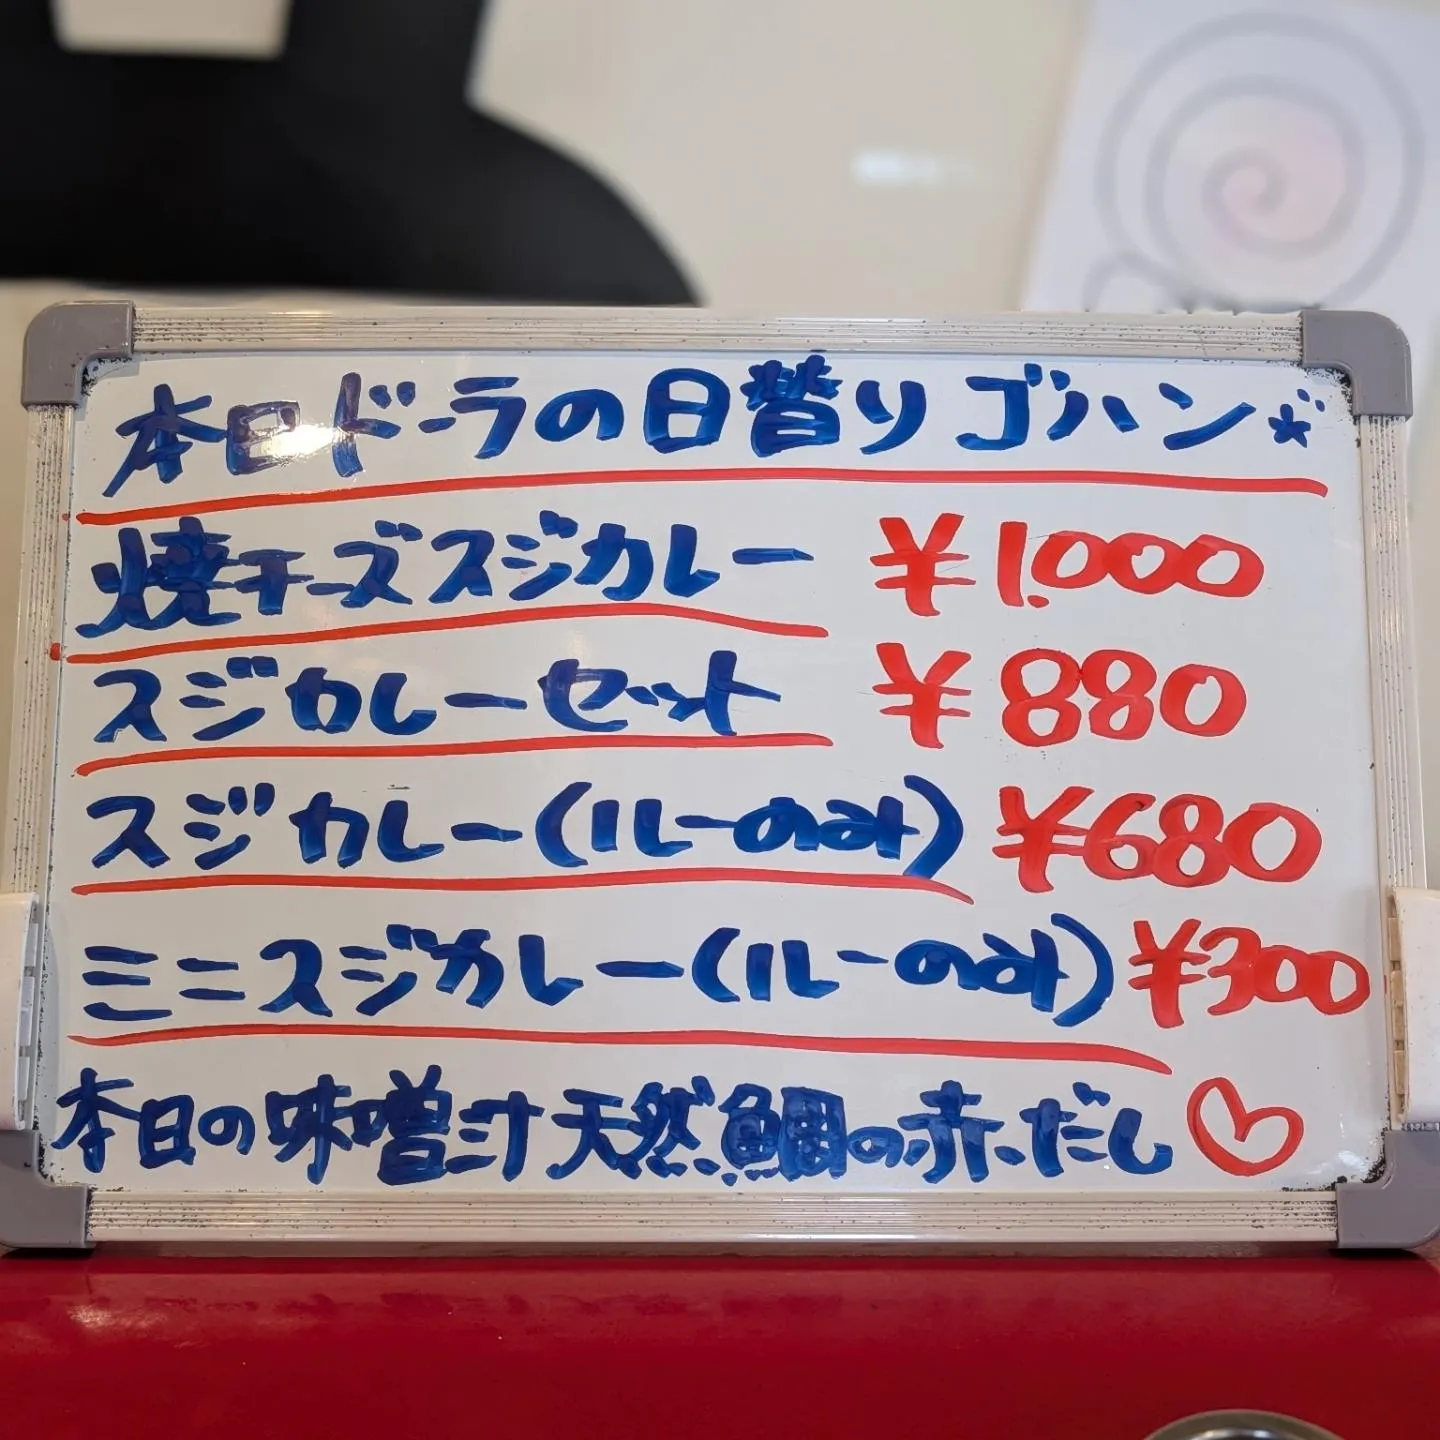 本日ドーラの日替りゴハン☆
焼チーズスジカレー ¥1.000
スジカレーセット ¥880
スジカレー(ルーのみ) ¥680
ミニスジカレー(ルーのみ) ¥300
本日の味噌汁天然鯛の赤だし♡